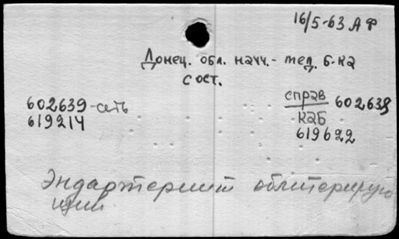 16/5-63 АФ
Донец. обл. научн.-мед. б-ка
сост.
602639-сеть
619214
справ 602638
каб 619622
Эндартериит облитерирую
щий